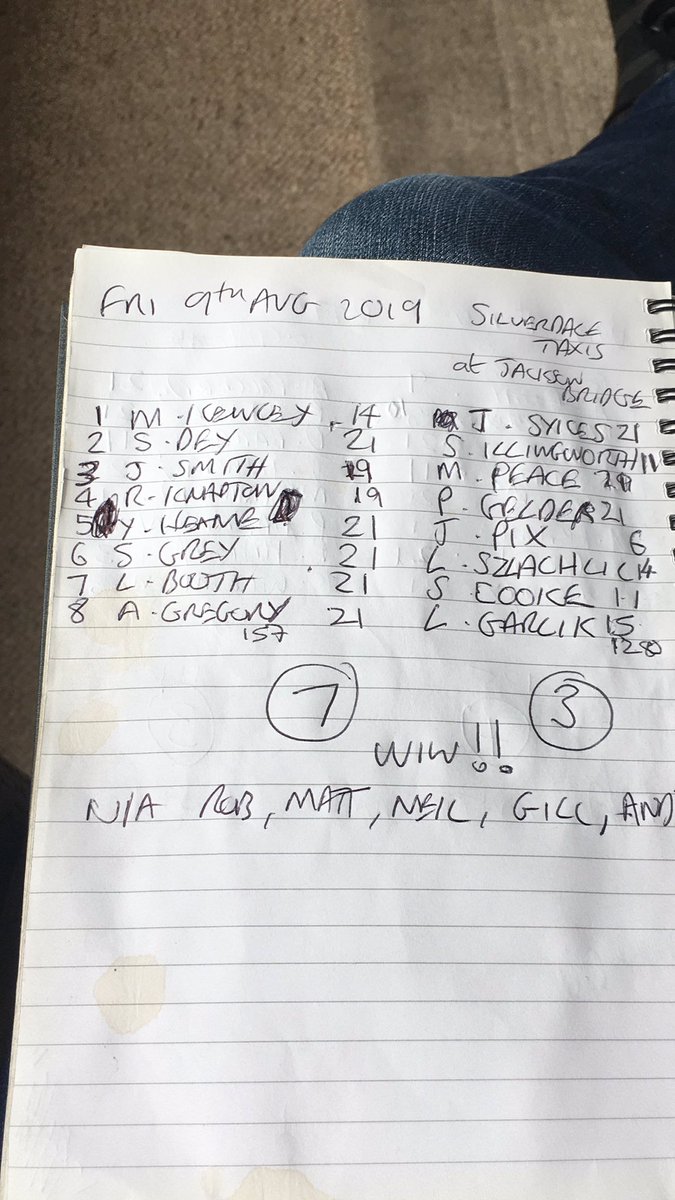 FRI 9th AUG 2019 SILVERDALE
TAXIS
at JACKSON
BRIDGE
1 M. KEWLEY 14 J. SYKES 21
2 S. DEY 21 S. ILLINGWORTH 11
3 J. SMITH 19 M. PEACE 21
4 R. KNAPTON 19 P. GELDER 21
5 Y. HEAME 21 J. PIX 6
6 S. GREY 21 L. SZLACHLIC 14
7 L. BOOTH 21 S. COOKE 11
8 A. GREGORY 21 L. GARLIK 15
157 128
7 3
WIN!!
N/A ROB, MATT, NEIL, GILL, AND